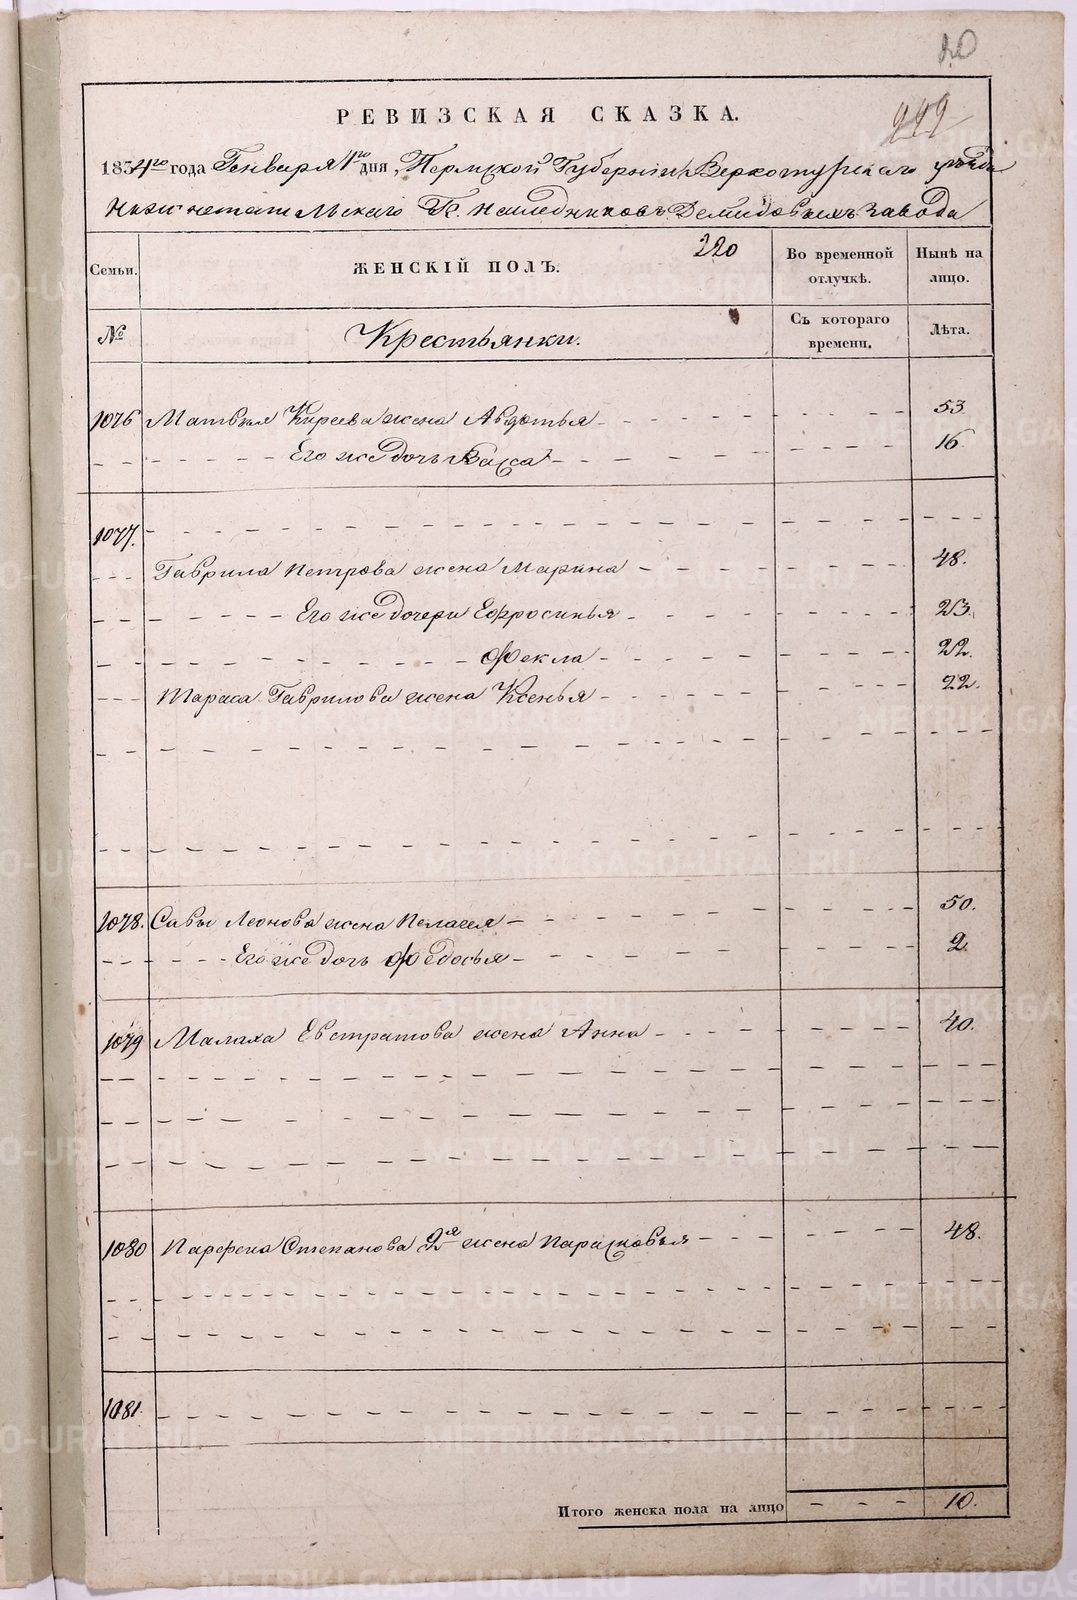 20
РЕВИЗСКАЯ СКАЗКА.
1834го года Генваря 1го дня, Пермской Губернии Верхотурскаго уезда
Нижнетагильскаго Г. Наследниковъ Демидовыхъ завода
Семьи.
ЖЕНСКІЙ ПОЛЪ.
220
Во временной отлучкѣ.
Нынѣ на лицо.
№
Крестьянки.
Съ котораго времени.
Лѣта.
1076 Матвея Киреева жена Авдотья 53.
Его же дочь Васса 16.
1077.
Гаврила Петрова жена Марина 48.
Его же дочери Ефросинья 23.
Фекла 22.
Тараса Гаврилова жена Ксенья 22.
1078. Савы Леонова жена Пелагея 50.
Его же дочь Федосья 2.
1079 Малаха Евстратова жена Анна 40.
1080 Парфена Степанова 2я жена Парасковья 48.
1081.
Итого женска пола на лицо 10.
METRIKI.GASO-URAL.RU